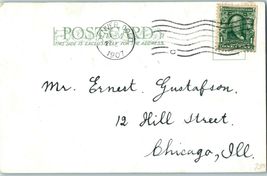 POSTCARD
THIS SIDE IS EXCLUSIVELY FOR THE ADDRESS
1907
Mr. Ernest Gustafson.
12 Hill Street.
Chicago, Ill.